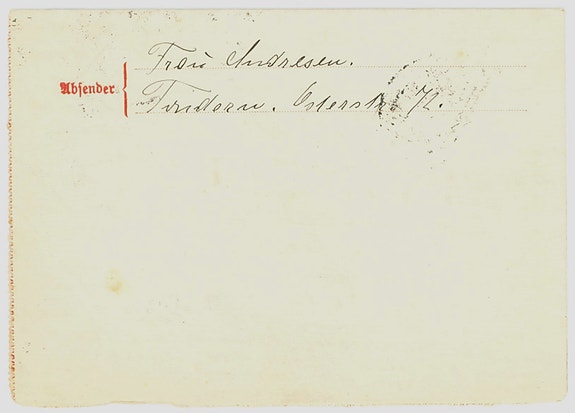 Absender
Frau Andresen.
Tondern. Osterstr. 72.